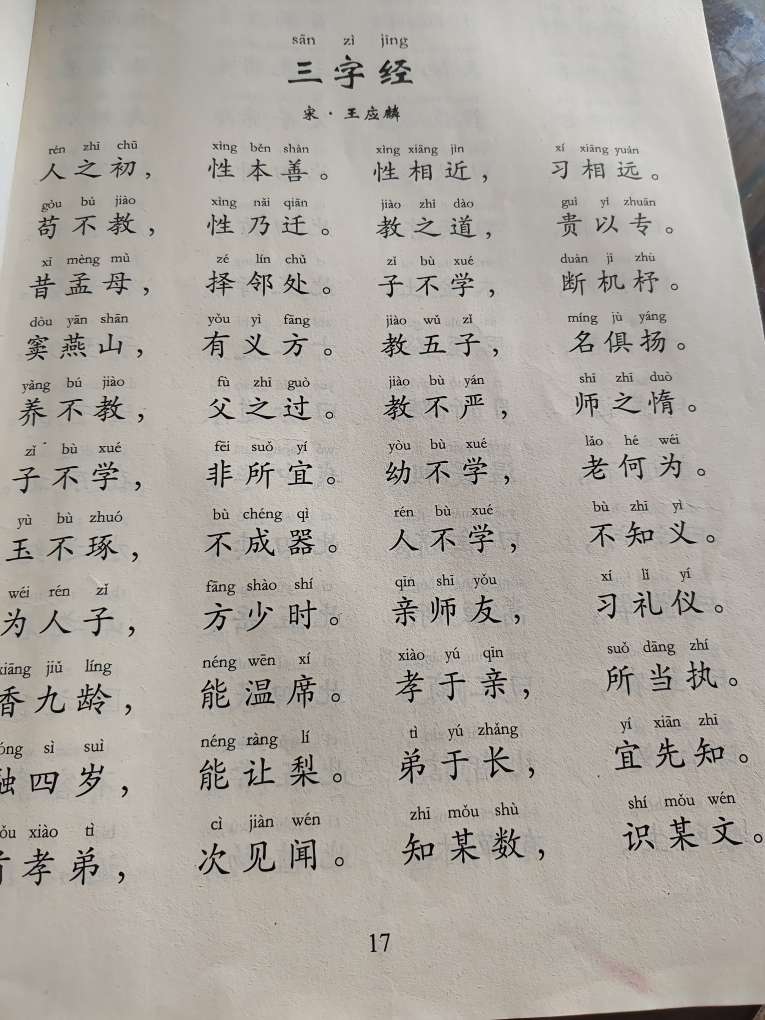 sān zì jīng
三字经
宋·王应麟
rén zhī chū xìng běn shàn xìng xiāng jìn xí xiāng yuǎn
人之初，性本善。性相近，习相远。
gǒu bú jiào xìng nǎi qiān jiào zhī dào guì yǐ zhuān
苟不教，性乃迁。教之道，贵以专。
xī mèng mǔ zé lín chǔ zǐ bù xué duàn jī zhù
昔孟母，择邻处。子不学，断机杼。
dòu yān shān yǒu yì fāng jiào wǔ zǐ míng jù yáng
窦燕山，有义方。教五子，名俱扬。
yǎng bú jiào fù zhī guò jiào bù yán shī zhī duò
养不教，父之过。教不严，师之惰。
zǐ bù xué fēi suǒ yí yòu bù xué lǎo hé wéi
子不学，非所宜。幼不学，老何为。
yù bù zhuó bù chéng qì rén bù xué bù zhī yì
玉不琢，不成器。人不学，不知义。
wéi rén zǐ fāng shào shí qīn shī yǒu xí lǐ yí
为人子，方少时。亲师友，习礼仪。
xiāng jiǔ líng néng wēn xí xiào yú qīn suǒ dāng zhí
香九龄，能温席。孝于亲，所当执。
sì suì néng ràng lí tì yú zhǎng yí xiān zhī
融四岁，能让梨。弟于长，宜先知。
xiào tì cì jiàn wén zhī mǒu shù shí mǒu wén
孝弟，次见闻。知某数，识某文。
17